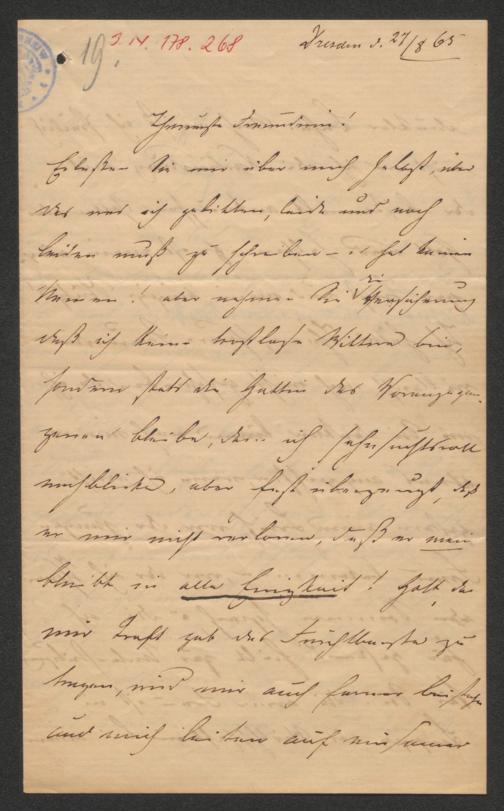 19.
I.N. 178.268
Dresden d. 27/8 65
Theuerste Freundin!
Erlassen Sie mir über mich selbst, über
das was ich gelitten, leide und noch
leiden muß zu schreiben – es hat keinen
Namen! aber nehmen Sie die Versicherung
daß ich keine trostlose Wittwe bin,
sondern stets die Gattin des Vorangegan-
genen bleibe, dem ich sehnsuchtsvoll
nachblicke, aber fest überzeugt, daß
er mir nicht verloren, daß er mein
bleibt in alle Ewigkeit! Gott der
mir Kraft gab das Furchtbarste zu
tragen, wird mir auch ferner beistehen
und mich leiten auf einsamer